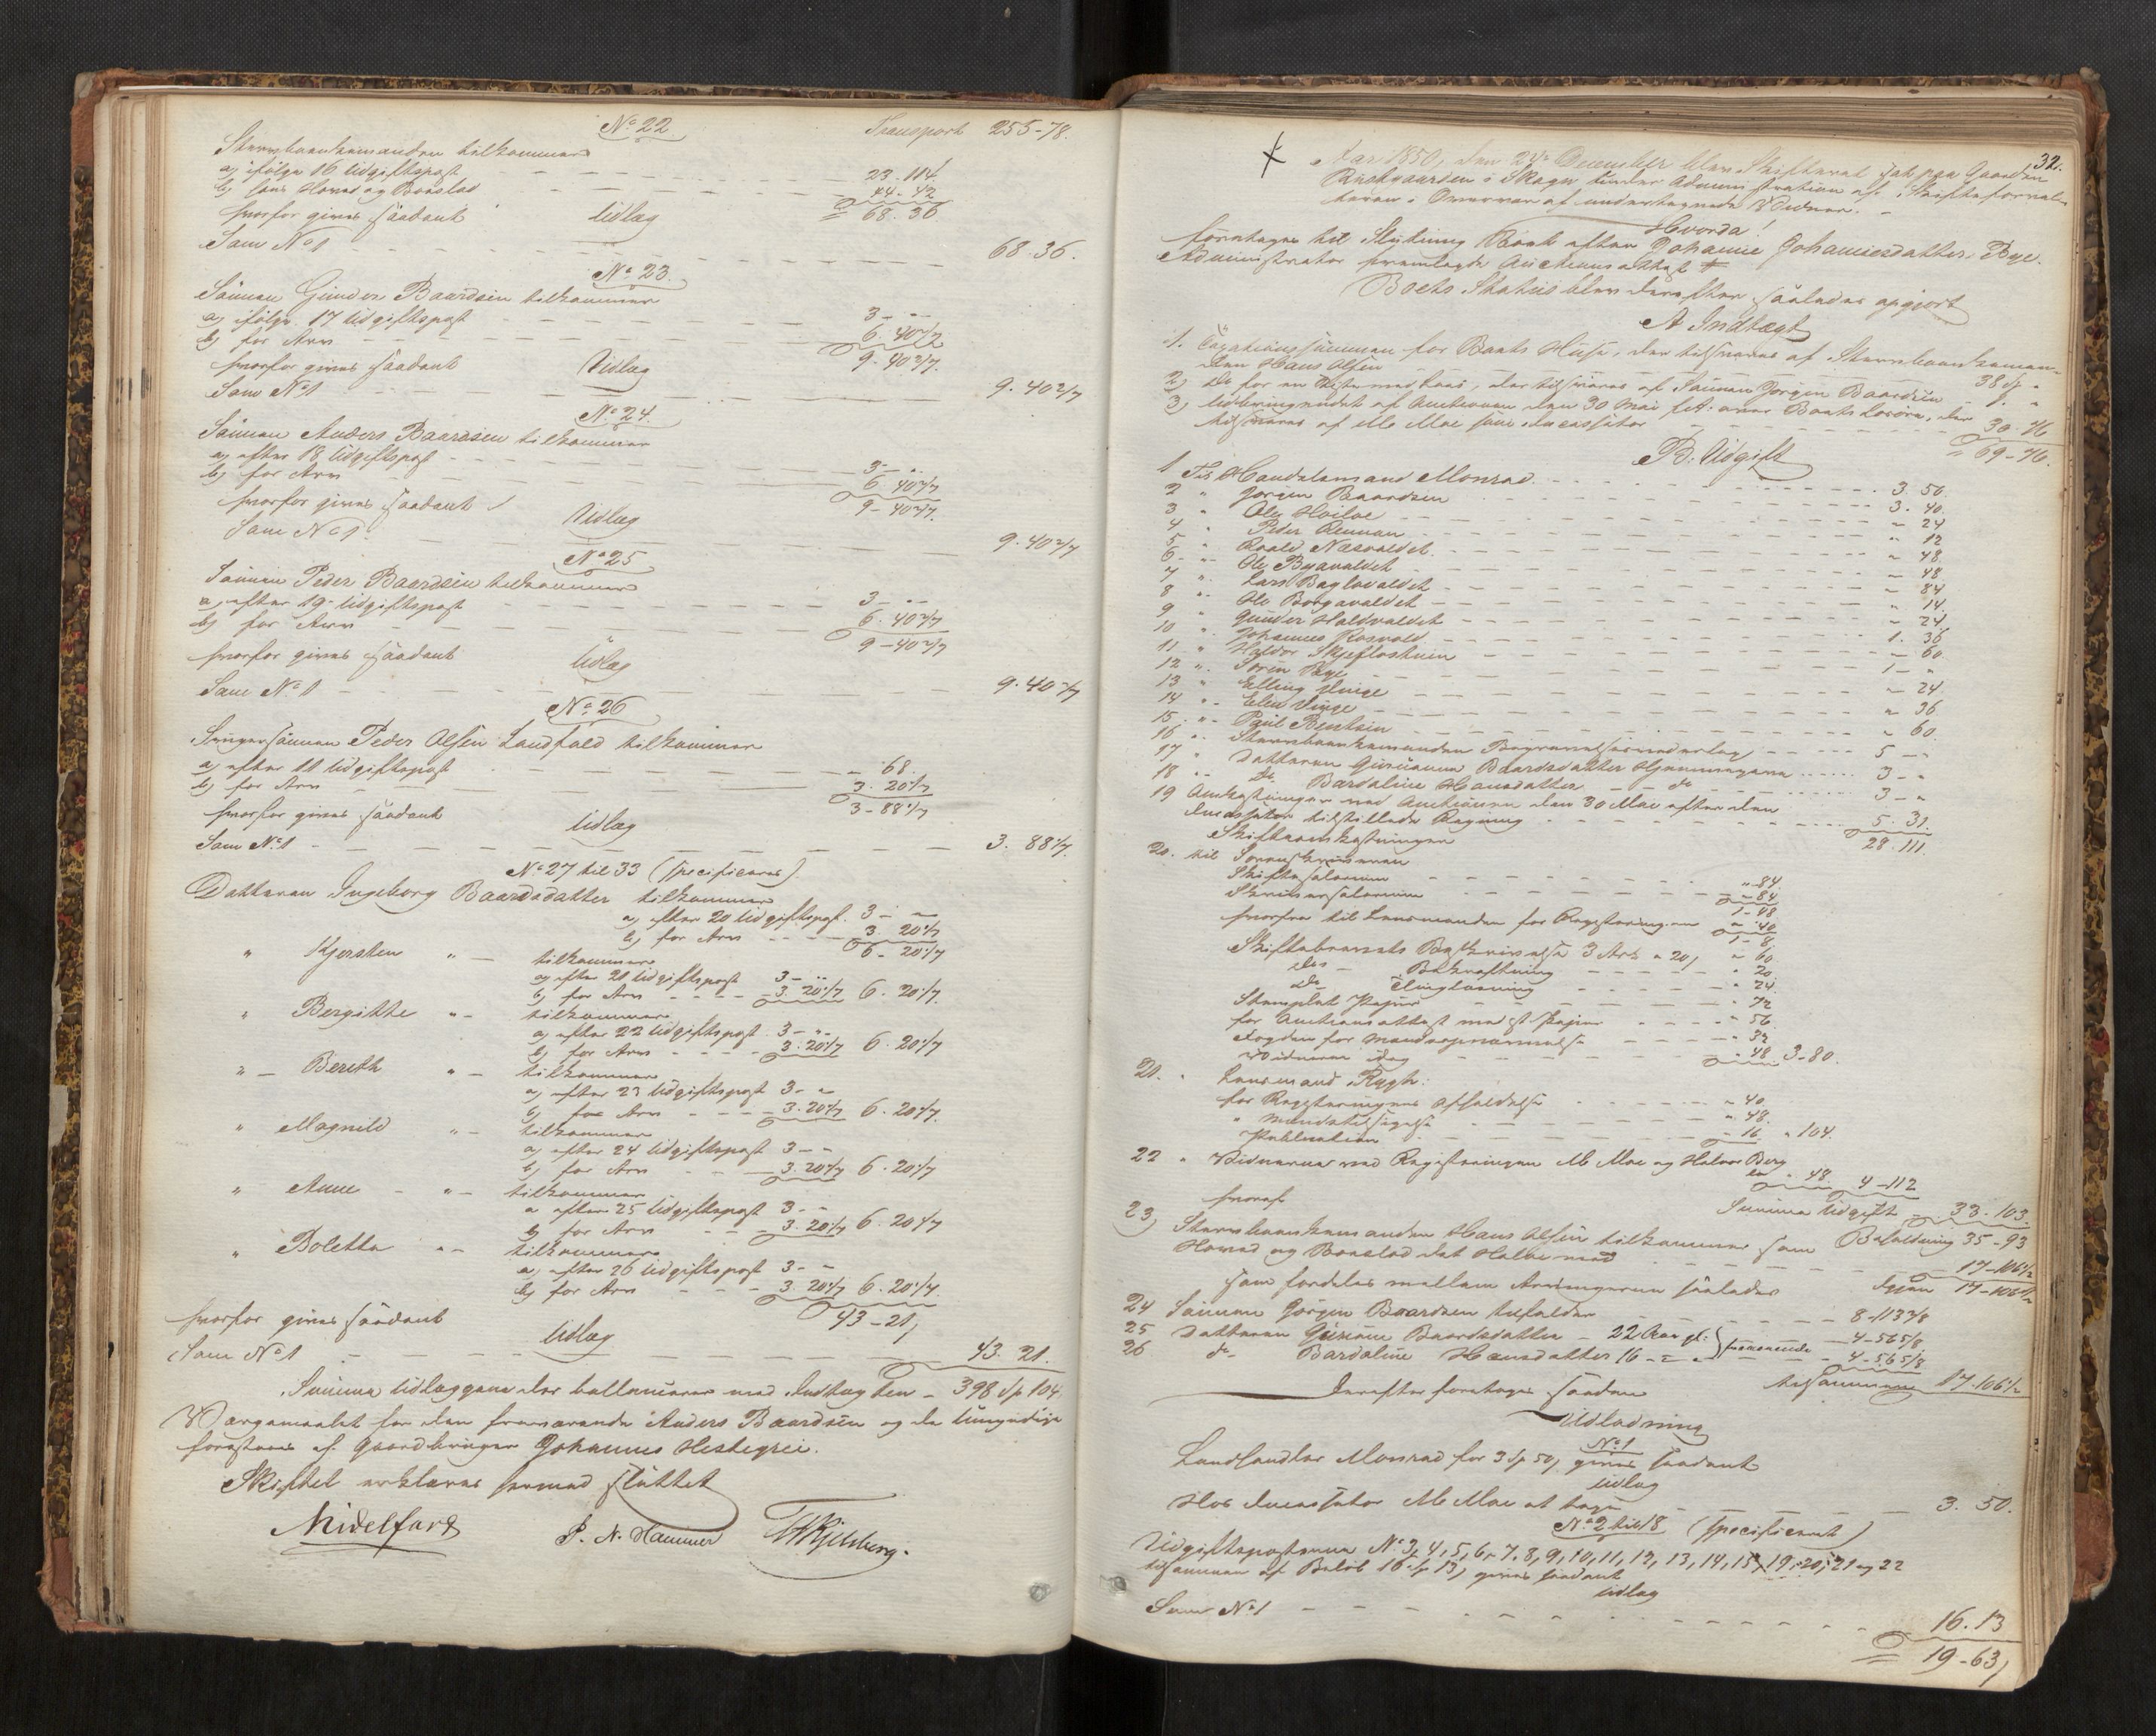 No 22. Transport 255-78.
Stervboenkemanden tilkommer
a, ifölge 16 Udgiftspost 23. 114.
b, som Hoved og Boeslod 44-42
hvorfor gives saadant 68. 36
Udlæg
Som No 1 68. 36.
No 23.
Sönnen Gunder Baardsen tilkommer
a, ifölge 17 Udgiftspost 3 - -
b, for Arv 6. 40 2/7
hvorfor gives saadant 9-40 2/7.
Udlæg
Som No 1 9. 40 2/7
No 24.
Sönnen Anders Baardsen tilkommer
a, efter 18 Udgiftspost 3 - -
b, for Arv 6. 40 2/7
hvorfor gives saadant 9-40 2/7.
Udlæg
Som No 1. 9. 40 2/7
No 25
Sönnen Peder Baardsen tilkommer
a, efter 19 Udgiftspost 3 - -
b, for Arv 6. 40 2/7
hvorfor gives saadant 9-40 2/7
Udlæg
Som No 1 9. 40 2/7
No 26
Peder Olsen Landfald tilkommer
a, efter 11 Udgiftspost - 68.
b, for Arv 3. 20 1/7
hvorfor gives saadant 3-88 1/7
Udlæg
Som No 1 3. 88 1/7.
No 27 til 33 (specificeres)
Datteren Ingeborg Baardsdatter tilkommer
a, efter 20 Udgiftspost. 3 - -
b, for Arv 3. 20 1/7
6-20 1/7
" Kjersten " tilkommer
a, efter 21 Udgiftspost 3 - -
b, for Arv 3. 20 1/7 6. 20 1/7.
" Bergitte " tilkommer
a, efter 22 Udgiftspost. 3 - -
b, for Arv 3. 20 1/7 6. 20 1/7
" Bereth " tilkommer
a, efter 23 Udgiftspost 3 - -
b, for Arv 3. 20 1/7 6. 20 1/7.
" Magnild " tilkommer
a, efter 24 Udgiftspost 3 - -
b, for Arv 3. 20 1/7 6. 20 1/7
" Anne " tilkommer
a efter 25 Udgiftspost 3 - -
b, for Arv 3. 20 1/7 6. 20 1/7
" Boletta " tilkommer
a, efter 26 Udgiftspost 3 - -
b, for Arv 3. 20 1/7 6. 20 1/7.
hvorfor gives saadant 43-21,
Udlæg
Som No 1 43. 21.
Summa Udlæggene der ballancerer med Indtægten - 398 Sp 104.
Værgemaalet for den fraværende Anders Baardsen og de Umyndige
forestaaes af Gaardbruger Johannes Hestegrei.
Skiftet erklæres hermed sluttet
Midelfart P. N. Hammer
32.
Aar 1850, den 24de December blev Skifteret sat paa Gaarden
i Skogn under Administration af Skifteforval-
teren i Overvær af undertegnede Vidner. -
Hvorda!
foretoges til Slutning Boet efter Johanne Johannesdatter Bye.
Administrator fremlagte Auctionsattest
Boets Status blev derefter saaledes opgjort
A Indtægt
1. Taxationssummen for Boets Huse, der tilsvares af Stervboenkeman-
den Hans Olsen 38 Sp -
2, Do for en, der tilsvares af Sönnen Jörgen Baardsen 1. -
3, Udbringendet af Auctionen den 30 Mai d. A. over Boets Lösöre, der
tilsvares af M Moe som Incassator 30. 76
69-76.
B: Udgift
1 Til Handelsmand Monrad 3. 50.
2 " Jörgen Baardsen 3. 40.
3 " Ole Hoiloe " 24
4 " Peder " 12
5 " Næsvaldet " 48
6 " Ole Byavaldet " 48.
7 " Lars Baglovaldet " 84
8 " Ole Borgavaldet " 14.
9 " Gunder Haldvaldet " 24,
10 " Johannes Rosvold 1. 36
11 " Haldor Skjeflostuen " 60.
12 " Sören Bye 1 - "
13 " Elling " 24.
14 " Elen Vinge " 36
15. " Paul Bentsen " 60.
16 " Stervboenkemanden Begravelsesvederlag 5 - "
17 " Datteren Gurianna Baardsdatter Hjemmegave 3 - "
18 " do Bardoline Hansdatter do 3 - "
19 Omkostninger ved Auctionen den 30 Mai efter den
Incassator tilstillede Regning 5. 31.
Skifteomkostninger 28. 111.
20. til Sorenskriveren
Skiftesalarium " 84.
Skriversalarium " 84
1-48
hvorfra til Lensmanden for Registeringen " 40
1-8,
Skiftebrevets Beskrivelse 3 Ark a 20, " 60
Dets Bekræftning " 20.
Do Tinglæsning " 24.
Stemplet Papir " 72
for Auctionsattest med st Papir " 56
Fogden for Mandsopnævnelse
Vidnerne idag " 48. 3-80.
21. " Lensmand Rygh:
for Registeringens Afholdelse " 40.
" Mandstilsigelse " 48.
Publication " 16 " 104.
22 " Vidnerne ved Registeringen M Moe og Halvor Berg
" 48 4-112
hvoraf Summa Udgift 33. 103.
Beholdning 35-93
23, Stervboenkemanden Hans Olsen tilkommer som
Hoved og Boeslod det Halve med 17-106 1/2
Igjen 17-106 1/2
som fordeles mellem Arvingerne saaledes
24 Sönnen Jörgen Baardsen tilfalder 8-113 2/8
25 Datteren Guriane Baardsdatter - 22 Aar gl: 4-56 5/8
26 do Bardoline Hansdatter 16 - " fraværende 4-56 5/8
Derefter foretoges saadan tilsammen 17-106 1/2
Udlodning
No 1
Landhandler Monrad for 3 Sp 50, gives saadant
Udlæg
Hos Incassator M Moe at tage 3. 50.
No 2 til 18 (specificeret)
Udgiftsposterne No 3, 4, 5, 6, 7, 8, 9, 10, 11, 12, 13, 14, 15, 19, 20, 21 og 22
tilsammen af Belöb 16 Sp 13, gives saadant
Udlæg
Som No 1 16. 13
19-63,